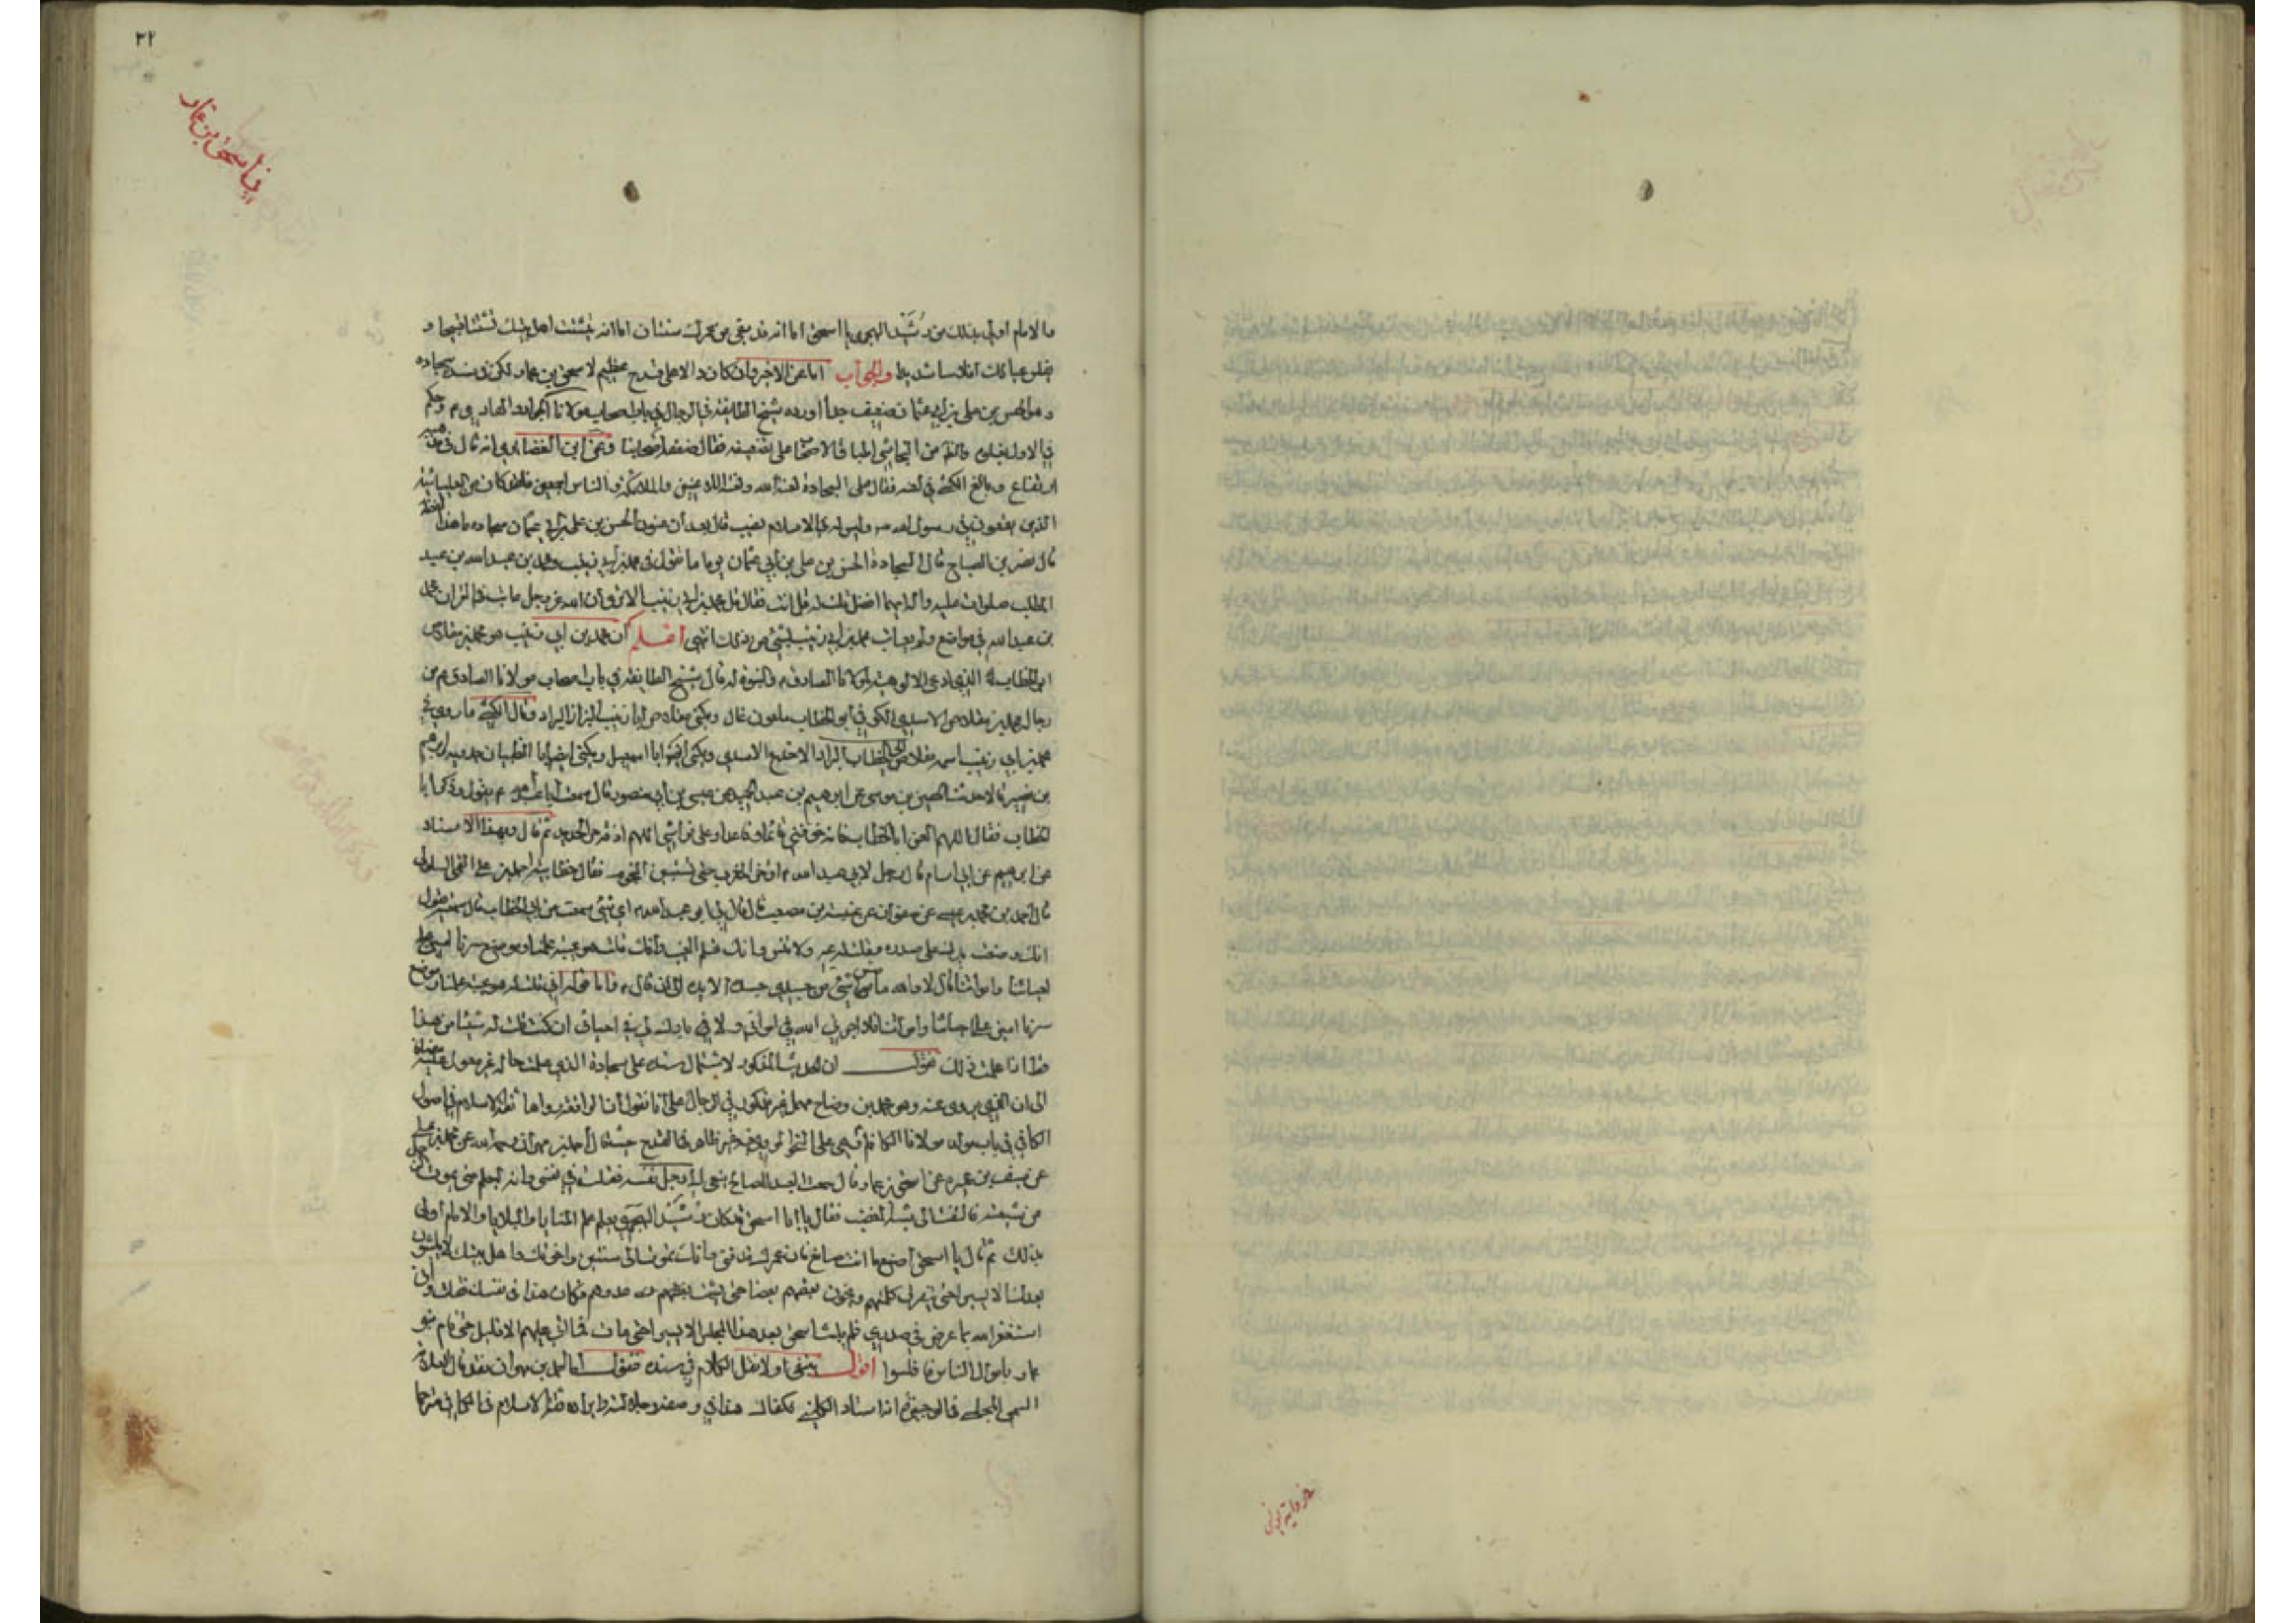 ٣٢
في اسحق بن عمار
والامام اولى بذلك من رشيد الهجري يا اسحق اما انه قد بقي من عمرك سنتان اما انه يتشتت اهل بيتك تشتتا قبيحا و
يفلس عيالك افلاسا شديدا والجواب اما عن الاخير وان كان دالا على قدح عظيم لاسحق بن عمار لكن في سنده سجاده
وهو الحسن بن علي بن ابي عثمان ضعيف جدا اورده شيخ الطايفة في الرجال في باب اصحاب مولانا الجواد والهادي ع م وحكم
في الاول بغلوه النجاشي اصحابنا على تضعيفه فقال ضعفه اصحابنا وعن ابن الغضايري انه قال في مذهبه
ارتفاع وبالغ الكشي في لعنه فقال على السجادة لعنة الله ولعنة اللاعنين والملائكة والناس اجمعين فلقد كان من العليائية
الذين يقعون في رسول الله ص وليس لهم في الاسلام نصيب قال بعد ان عنون الحسن بن علي بن ابي عثمان سجاده ما هذا لفظه
قال نصر بن الصباح قال لي السجادة الحسن بن علي بن ابي عثمان يوما ما تقول في محمد بن ابي زينب ومحمد بن عبد الله بن عبد
المطلب صلوات عليه وآله ايهما افضل قلت له قل انت فقال بل محمد بن ابي زينب الا ترى ان الله عز وجل عاتب في القرآن محمد
بن عبد الله في مواضع ولم يعاتب محمد بن ابي زينب بشيء من ذلك انتهى اعلم ان محمد بن ابي زينب هو محمد بن مقلاص
ابو الخطاب الذي ادعى الالوهية لمولانا الصادق ع والنبوة له قال شيخ الطايفة في باب اصحاب مولانا الصادق ع من
رجاله محمد بن مقلاص الاسدي الكوفي ابو الخطاب ملعون غال ويكنى مقلاص ابا زينب البزاز البراد وقال الكشي ما روي في
محمد بن ابي زينب اسمه مقلاص ابي الخطاب البراد الاجدع الاسدي ويكنى ايضا ابا اسمعيل ويكنى ايضا ابا الظبيان حمدويه وابراهيم
بن نصير قالا حدثنا الحسين بن موسى عن ابرهيم بن عبد الحميد عن عيسى بن ابي منصور قال سمعت ابا عبد الله ع يقول وذكر ابا
الخطاب فقال اللهم العن ابا الخطاب فانه خوفني قائما وقاعدا وعلى فراشي اللهم اذقه حر الحديد ثم قال وبهذا الاسناد
عن ابرهيم عن ابي اسامة قال رجل لابي عبد الله ع اؤخر المغرب حتى تستبين النجوم فقال خطابية احمد بن علي القمي السلولي
قال احمد بن محمد بن عيسى عن صفوان عن عنبسة بن مصعب قال قال لي ابو عبد الله ع اي شيء سمعت من ابي الخطاب قال سمعته يقول
انك وضعت يدك على صدره وقلت له عه ولا تنس وانك تعلم الغيب وانك قلت هو عيبة علمنا وموضع سرنا امين على
احيائنا وامواتنا قال لا والله ما مس شيء من جسدي جسده الا يده الى ان قال ع واما قوله اني قلت له هو عيبة علمنا وموضع
سرنا امين على احيائنا وامواتنا فلا اجرني الله في امواتي ولا بارك لي في احيائي ان كنت قلت له شيئا من هذا
قط اذا علمت ذلك نقول ان الحديث المذكور لاشتمال سنده على سجادة الذي علمت حاله غير معول عليه مضافا
الى ان الذي يروي عنه وهو محمد بن وضاح مهمل غير مذكور في الرجال على انا نقول ان الواقعة رواها ثقة الاسلام في اصول
الكافي في باب مولد مولانا الكاظم ع على النحو غير ظاهر في القدح حيث قال احمد بن مهران رحمه الله عن محمد بن علي
عن سيف بن عميرة عن اسحق بن عمار قال سمعت العبد الصالح ينعى الى رجل نفسه فقلت في نفسي وانه ليعلم متى يموت الرجل
من شيعته فالتفت الي شبه المغضب فقال يا اسحق قد كان رشيد الهجري يعلم علم المنايا والبلايا والامام اولى
بذلك ثم قال يا اسحق اصنع ما انت صانع فان عمرك قد فنى وانك تموت الى سنتين واخوتك واهل بيتك لا يلبثون
بعدك الا يسيرا حتى تتفرق كلمتهم ويخون بعضهم بعضا حتى يشمت بهم عدوهم فكان هذا في نفسك فقلت فاني
استغفر الله بما عرض في صدري فلم يلبث اسحق بعد هذا المجلس الا يسيرا حتى مات فما اتى عليهم الا قليل حتى قام بنو
عمار باموال الناس فافلسوا اقول ينبغي اولا نقل الكلام في سنده فنقول اما احمد بن مهران فقد قال العلامة
السمي المجلسي في الوجيزة انه استاد الكليني